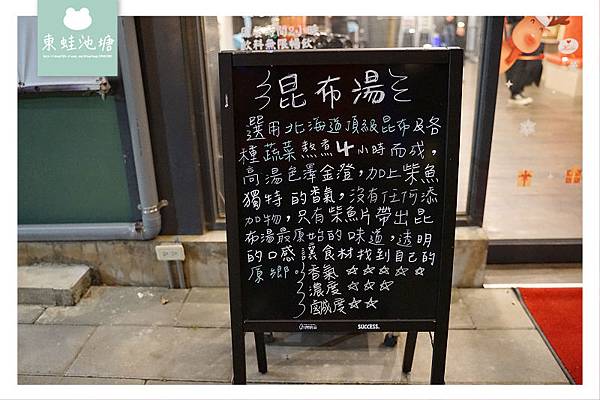 東蛙池塘
昆布湯
選用北海道頂級昆布及各
種蔬菜熬煮4小時而成，
高湯色澤金澄，加上柴魚
獨特的香氣，沒有任何添
加物，只有柴魚片帶出昆
布湯最原始的味道，透明
的口感讓食材找到自己的
原鄉。香氣☆☆☆☆☆
濃度☆☆☆☆
鹹度☆☆
SUCCESS.
飲料無限暢飲